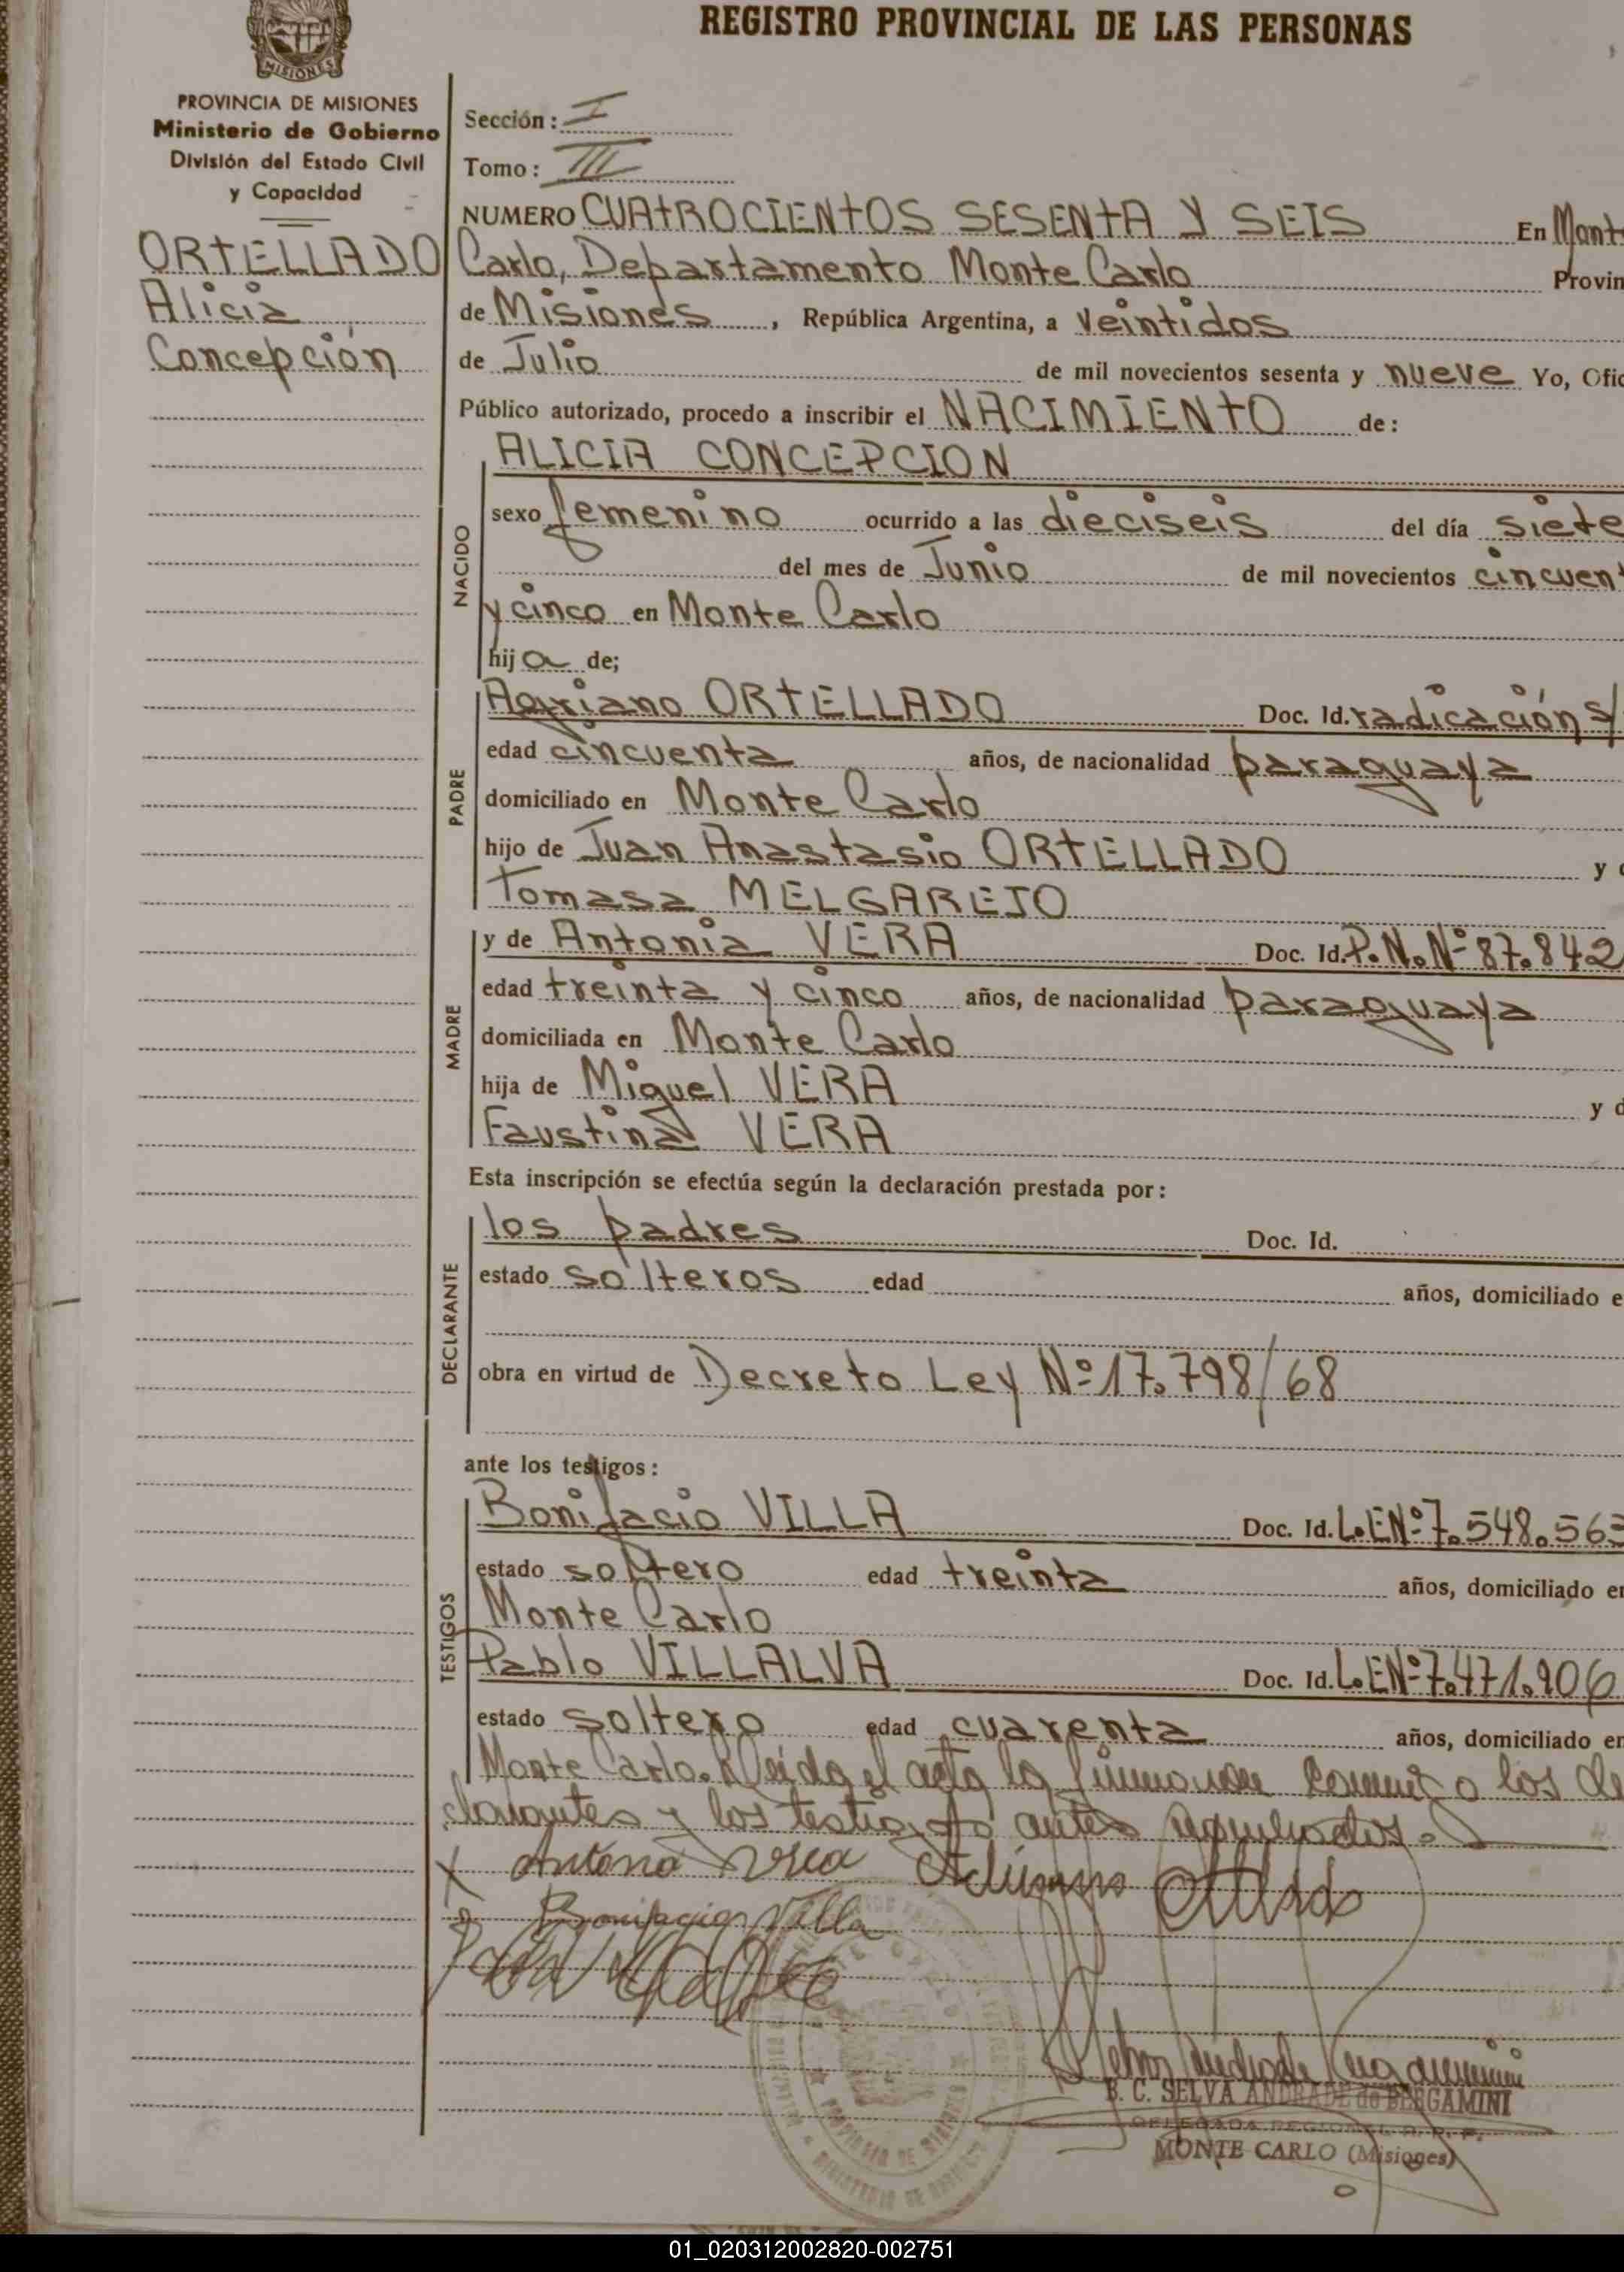 REGISTRO PROVINCIAL DE LAS PERSONAS
MISIONES
PROVINCIA DE MISIONES
Ministerio de Gobierno
División del Estado Civil
y Capacidad
ORTELLADO
Alicia
Concepción
Sección: I
Tomo: III
NUMERO CUATROCIENTOS SESENTA Y SEIS En Mont
Carlo, Departamento Monte Carlo Provin
de Misiones, República Argentina, a Veintidos
de Julio de mil novecientos sesenta y nueve Yo, Ofic
Público autorizado, procedo a inscribir el NACIMIENTO de:
NACIDO
ALICIA CONCEPCION
sexo femenino ocurrido a las dieciseis del día siete
del mes de Junio de mil novecientos cincuent
y cinco en Monte Carlo
hija de;
PADRE
Agriano ORTELLADO Doc. Id. radicación s/
edad cincuenta años, de nacionalidad paraguaya
domiciliado en Monte Carlo
hijo de Juan Anastasio ORTELLADO y d
Tomasa MELGAREJO
MADRE
y de Antonia VERA Doc. Id. P.N.Nº 87.842
edad treinta y cinco años, de nacionalidad paraguaya
domiciliada en Monte Carlo
hija de Miguel VERA y d
Faustina VERA
Esta inscripción se efectúa según la declaración prestada por:
DECLARANTE
los padres Doc. Id.
estado solteros edad años, domiciliado e
obra en virtud de Decreto Ley Nº 17.798/68
ante los testigos:
TESTIGOS
Bonifacio VILLA Doc. Id. L.E.Nº 7.548.563
estado soltero edad treinta años, domiciliado en
Monte Carlo
Pablo VILLALVA Doc. Id. L.E.Nº 7.471.906
estado soltero edad cuarenta años, domiciliado en
Monte Carlo. Leida el acta la firman conmigo los de
clarantes y los testigos antes
Antona Vera
Bonifacio Villa
B. C. SELVA ANDRADE de BERGAMINI
DELEGADA REGIONAL R. P. P.
MONTE CARLO (Misiones)
PROVINCIA DE MISIONES
01_020312002820-002751